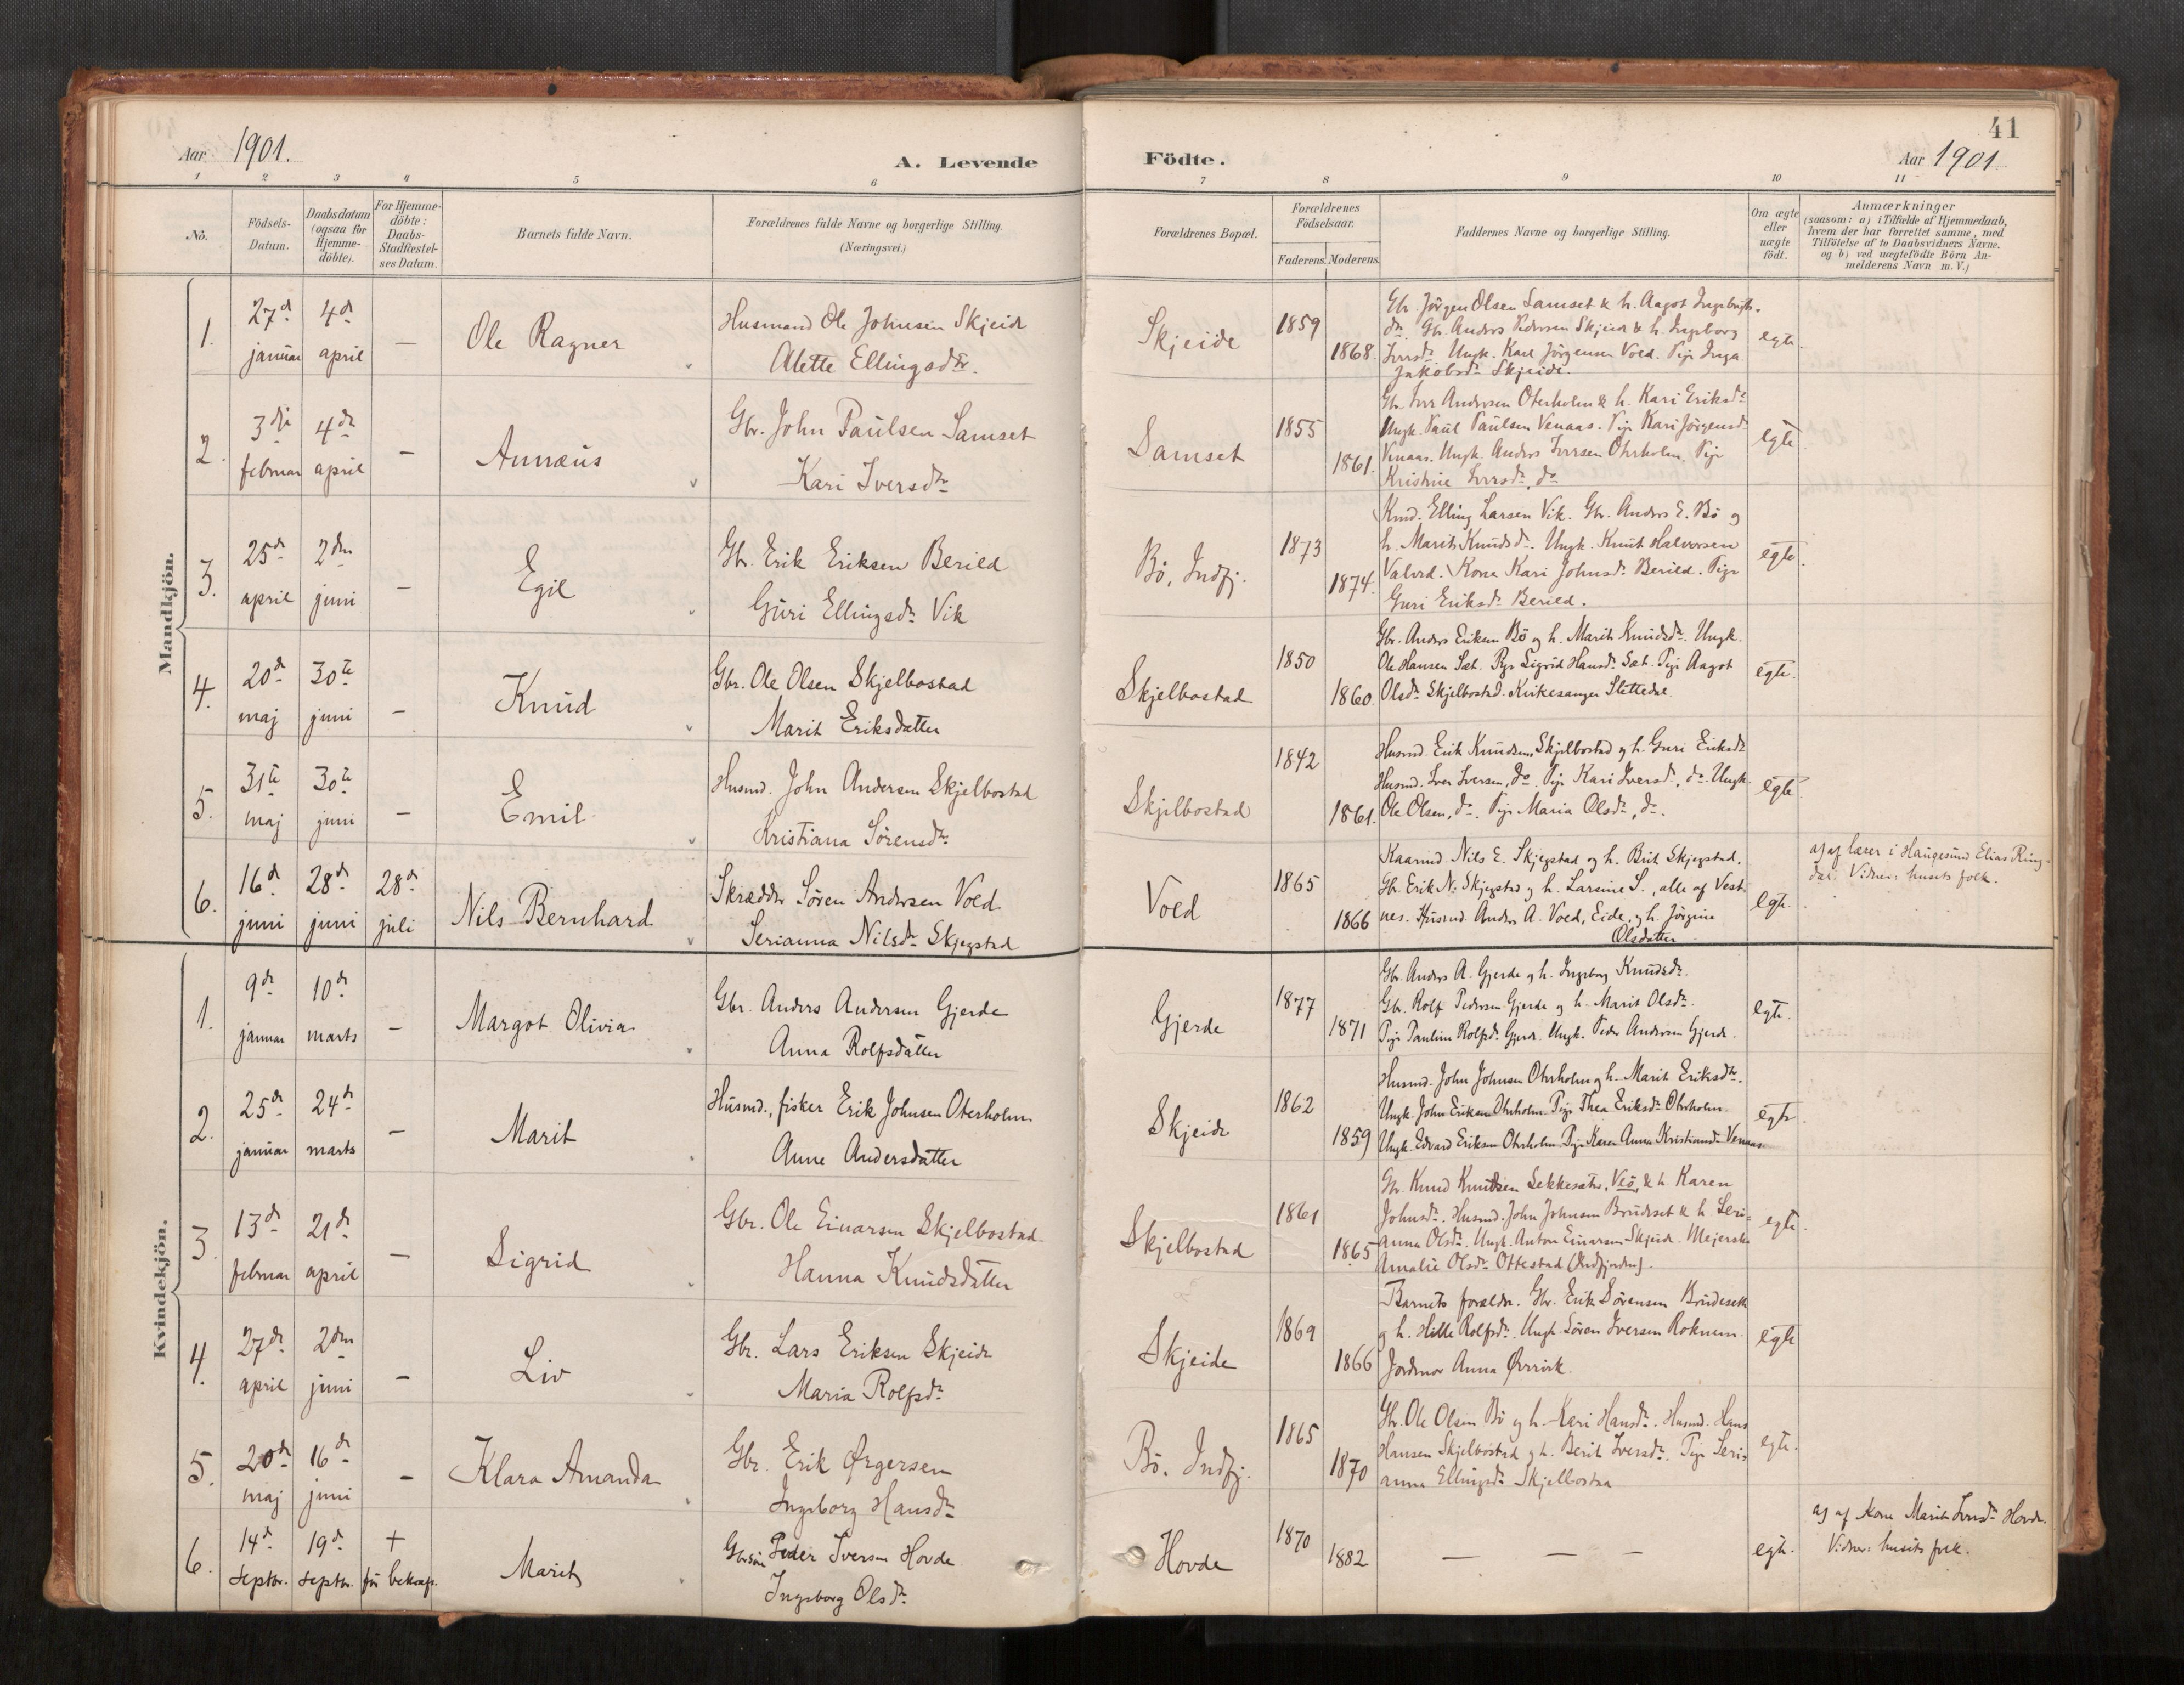 41
Aar 1901. A. Levende Födte. Aar 1901.
1 2 3 4 5 6 7 8 9 10 11
No.
Födsels-Datum.
Daabsdatum (ogsaa for Hjemme-döbte).
For Hjemme-döbte: Daabs-Stadfæstel-ses Datum.
Barnets fulde Navn.
Forældrenes fulde Navne og borgerlige Stilling. (Næringsvei.)
Forældrenes Bopæl.
Forældrenes Födselsaar.
Faderens. Moderens.
Faddernes Navne og borgerlige Stilling.
Om ægte eller uægte födt.
Anmærkninger
(saasom: a) i Tilfælde af Hjemmedaab,
hvem der har forrettet samme, med
Tilföielse af to Daabsvidners Navne.
og b) ved uægtefödte Börn An-
melderens Navn m. V.)
Mandkjön.
1. 27d januar 4d april — Ole Ragner
Husmand Ole Johnsen Skjeide
Alette Ellingsdtr.
Skjeide 1859 1868.
Gbr. Jörgen Olsen Samset & h. Aagot Ingebrigts-
dr. Gbr. Anders Pedersen Skjeide & h. Ingeborg
Iversdr. Ungk. Karl Jörgensen Vold. Pige Inga
Jakobsdr. Skjeide.
egte.
2. 3dje februar 4de april — Annæus
Gbr. John Paulsen Samset
Kari Iversdtr
Samset 1855 1861.
Gbr. Iver Andersen Oterholm & h. Kari Eriksdr
Ungk. Paul Paulsen Venaas. Pige Kari Jörgensdr
Venaas. Ungk. Anders Iversen Oterholm. Pige
Kristine Iversdr, do
egte
3. 25de april 2den juni — Egil
Gbr. Erik Eriksen Berild
Guri Ellingsdr Vik
Bö, Indfj. 1873 1874.
Kmd. Elling Larsen Vik. Gbr. Anders E. Bö og
h. Marit Knudsdr. Ungk. Knut Halvorsen
Valved. Kone Kari Johnsdr Berild. Pige
Guri Eriksdr Berild.
egte.
4. 20de maj 30te juni — Knud
Gbr. Ole Olsen Skjelbostad
Marit Eriksdatter
Skjelbostad 1850 1860
Gbr. Anders Eriksen Bö og h. Marit Knudsdr. Ungk.
Ole Hansen Sæt. Pige Sigrid Hansdr Sæt. Pige Aagot
Olsdr Skjelbostad. Kirkesanger Slettedal.
egte.
5. 31te maj 30te juni — Emil
Husmd. John Andersen Skjelbostad
Kristiana Sörensdtr
Skjelbostad 1842 1861.
Husmd. Erik Knudsen, Skjelbostad og h. Guri Eriksdr
Husmd. Iver Iversen, do. Pige Kari Iversdr, do. Ungk.
Ole Olsen, do. Pige Maria Olsdr, do.
egte
6. 16de juni 28de juni 28de juli Nils Bernhard
Skrædder Sören Andersen Vold
Serianna Nilsdr Skjegstad
Vold 1865 1866
Kaarmd Nils E. Skjegstad og h. Brit Skjegstad.
Gbr. Erik N. Skjegstad og h. Larsine S., alle af Vest-
nes. Husmd Anders A. Vold, Eide, og h. Jörgine
Olsdatter
egte.
a) af lærer i Haugesund Elias Ring-
dal. Vidner: husets folk.
Kvindekjön.
1. 9de januar 10de marts — Margot Olivia
Gbr. Anders Andersen Gjerde
Anna Rolfsdatter
Gjerde 1877 1871
Gbr. Anders A. Gjerde og h. Ingeborg Knudsdr.
Gbr. Rolf Pedersen Gjerde og h. Marit Olsdr.
Pige Pauline Rolfsdr Gjerde. Ungk. Peder Andersen Gjerde.
egte.
2. 25de januar 24de marts — Marit
Husmd., fisker Erik Johnsen Oterholm
Anne Andersdatter
Skjeide 1862 1859
Husmd. John Johnsen Oterholm og h. Marit Eriksdtr.
Ungk. John Eriksen Oterholm. Pige Thea Eriksdr Oterholm.
Ungk. Edvard Eriksen Oterholm. Pige Karen Anna Kristiansdr Venaas.
egte.
3. 13de februar 21de april — Sigrid
Gbr. Ole Einarsen Skjelbostad
Hanna Knudsdatter
Skjelbostad 1861 1865
Gbr. Knud Knudsen Sekkesæter, Veö, & h. Karen
Johnsdr. Husmd. John Johnsen Brudeset & h. Seri-
anna Olsdr. Ungk. Anton Einarsen Skjeide. Mejerske
Amalie Olsdr Ottestad (Indfjorden).
egte.
4. 27de april 2den juni — Liv
Gbr. Lars Eriksen Skjeide
Maria Rolfsdr
Skjeide 1869 1866
Barnets forældre. Gbr. Erik Sörensen Brudeseth
og h. Hille Rolfsdr. Ungk. Sören Iversen Roknem.
Jordmor Anna Övervik.
egte
5. 20de maj 16de juni — Klara Amanda
Gbr. Erik Örgersen
Ingeborg Hansdr
Bö. Indfj. 1865 1870
Gbr. Ole Olsen Bö og h. Kari Hansdr. Husmd. Hans
Hansen Skjelbostad og h. Berit Iversdr. Pige Seri-
anna Ellingsdr Skjelbostad
egte.
6. 14de septbr. 19de septbr. + før bekræft. Marit
Gbrsön Peder Iversen Hovde
Ingeborg Olsdr
Hovde 1870 1882
— — —
egte.
a) af Kone Marit Iversdr Hovde.
Vidner: husets folk.